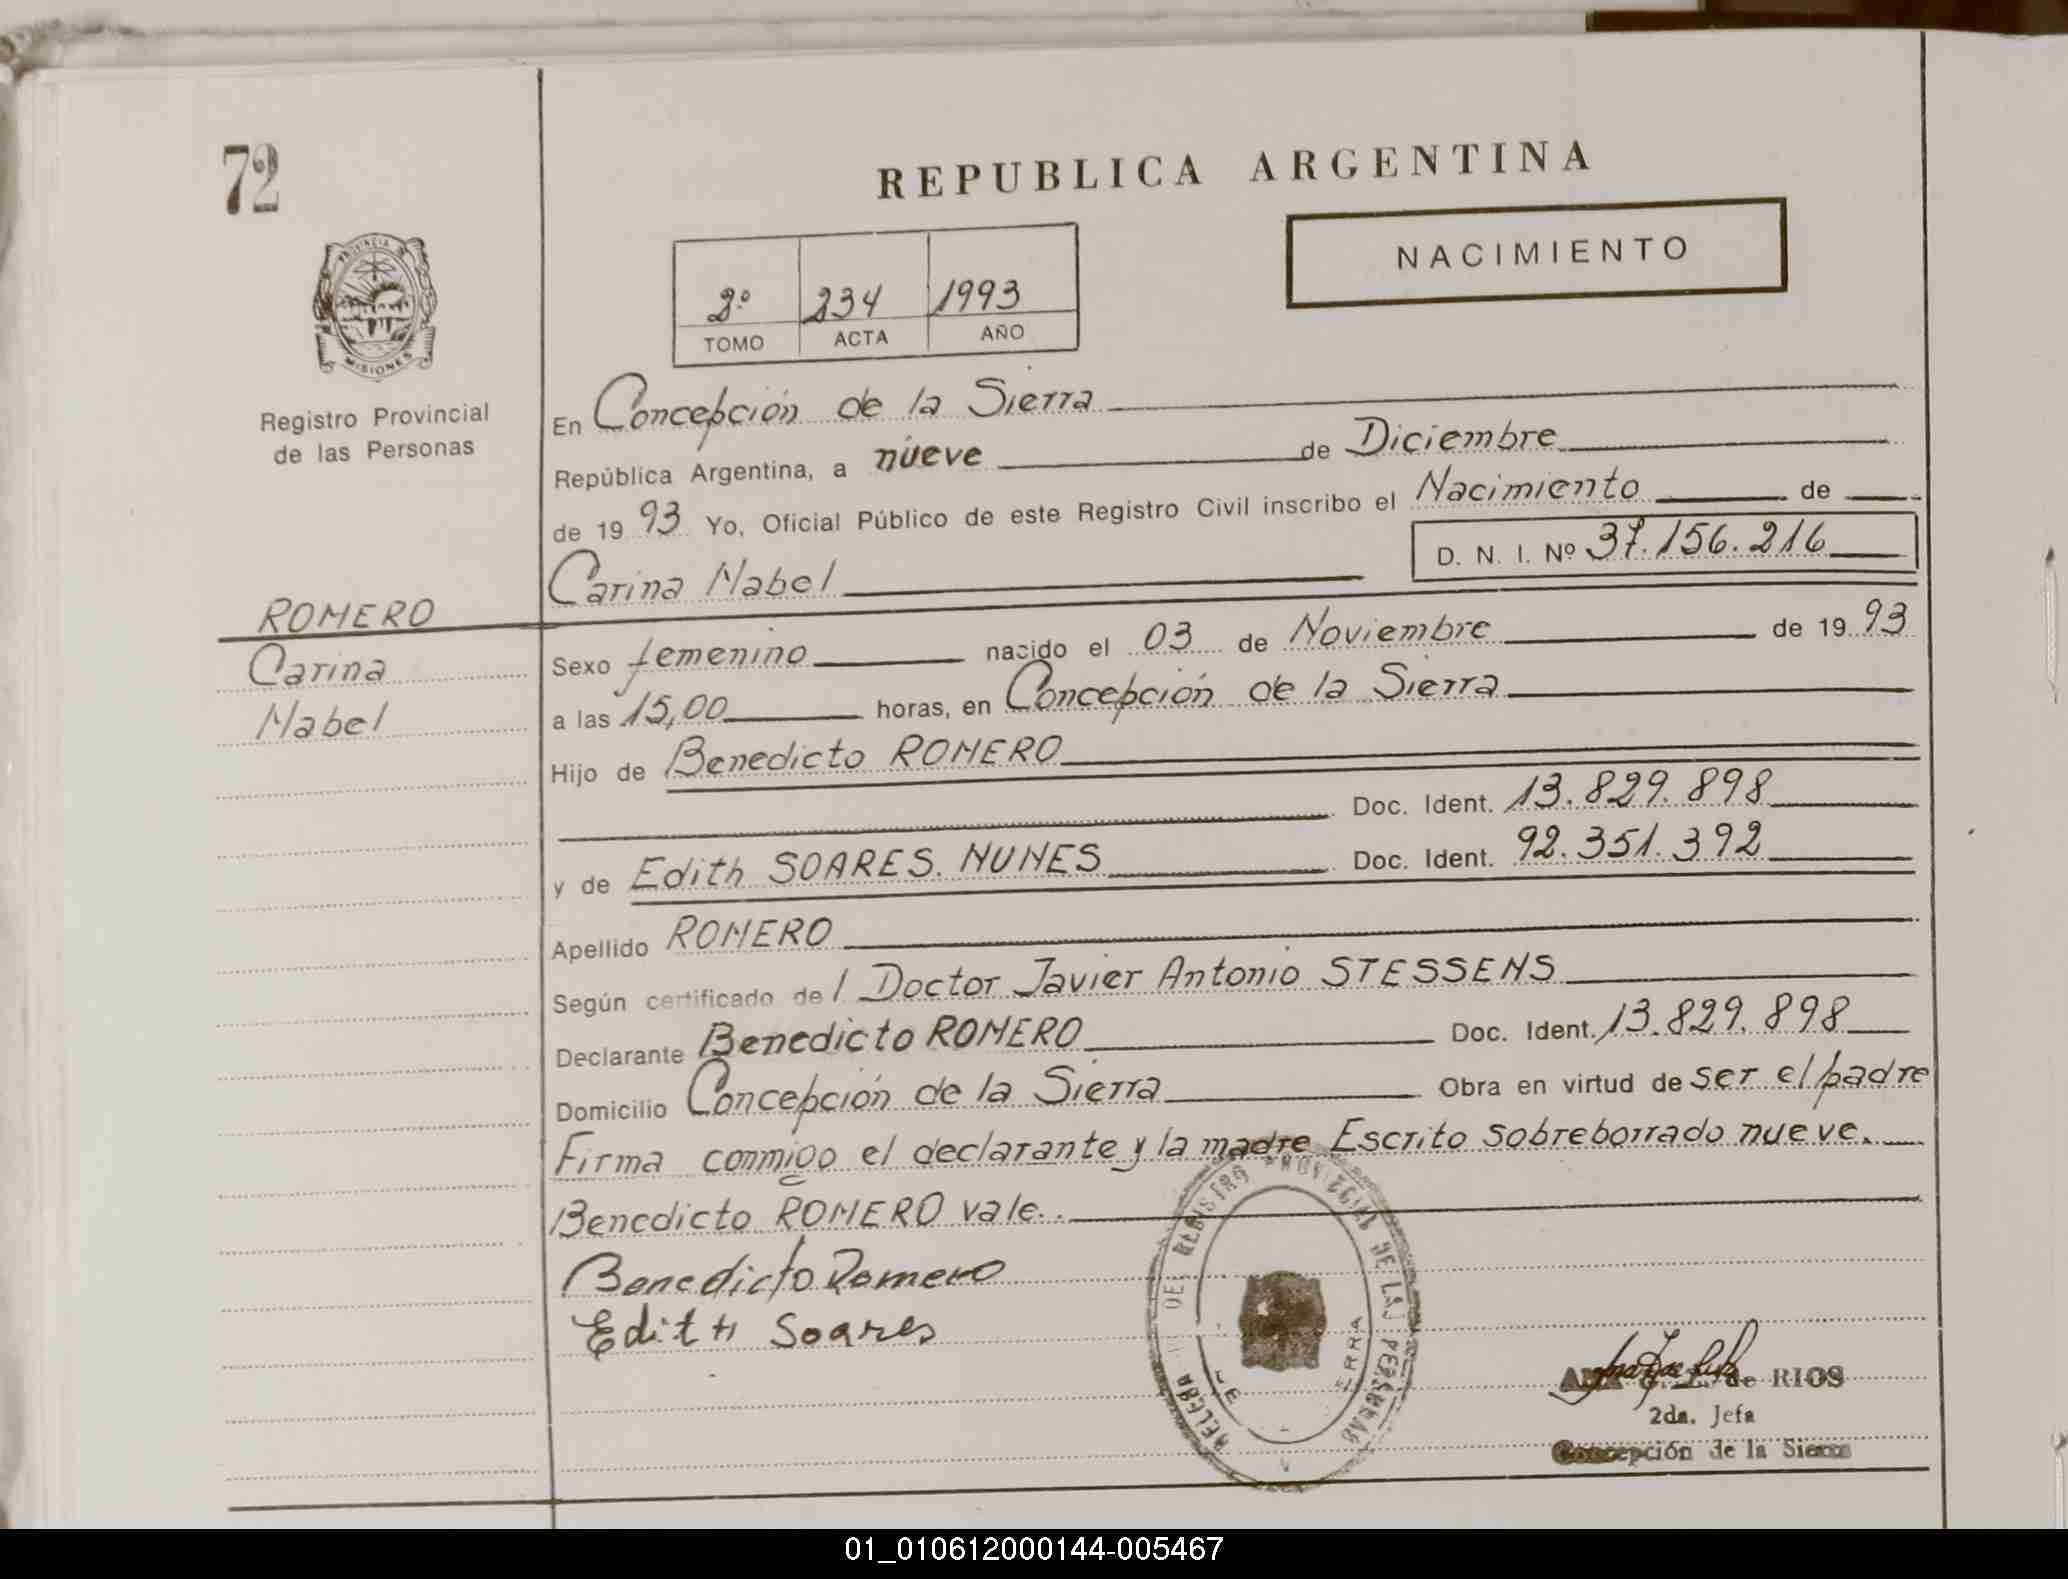 72
REPUBLICA ARGENTINA
NACIMIENTO
2º 234 1993
TOMO ACTA AÑO
PROVINCIA DE
MISIONES
Registro Provincial
de las Personas
En Concepción de la Sierra
República Argentina, a nueve de Diciembre
de 1993 Yo, Oficial Público de este Registro Civil inscribo el Nacimiento de
Carina Mabel D. N. I. Nº 37.156.216
ROMERO
Carina
Mabel
Sexo femenino nacido el 03 de Noviembre de 1993
a las 15,00 horas, en Concepción de la Sierra
Hijo de Benedicto ROMERO
Doc. Ident. 13.829.898
y de Edith SOARES. NUNES Doc. Ident. 92.351.392
Apellido ROMERO
Según certificado del Doctor Javier Antonio STESSENS
Declarante Benedicto ROMERO Doc. Ident. 13.829.898
Domicilio Concepción de la Sierra Obra en virtud de ser el padre
Firma conmigo el declarante y la madre Escrito sobreborrado nueve.
Benedicto ROMERO vale..
Benedicto Romero
Edith Soares
DEL REGISTRO PROVINCIAL DE LAS PERSONAS
de RIOS
2da. Jefa
Concepción de la Sierra
01_010612000144-005467